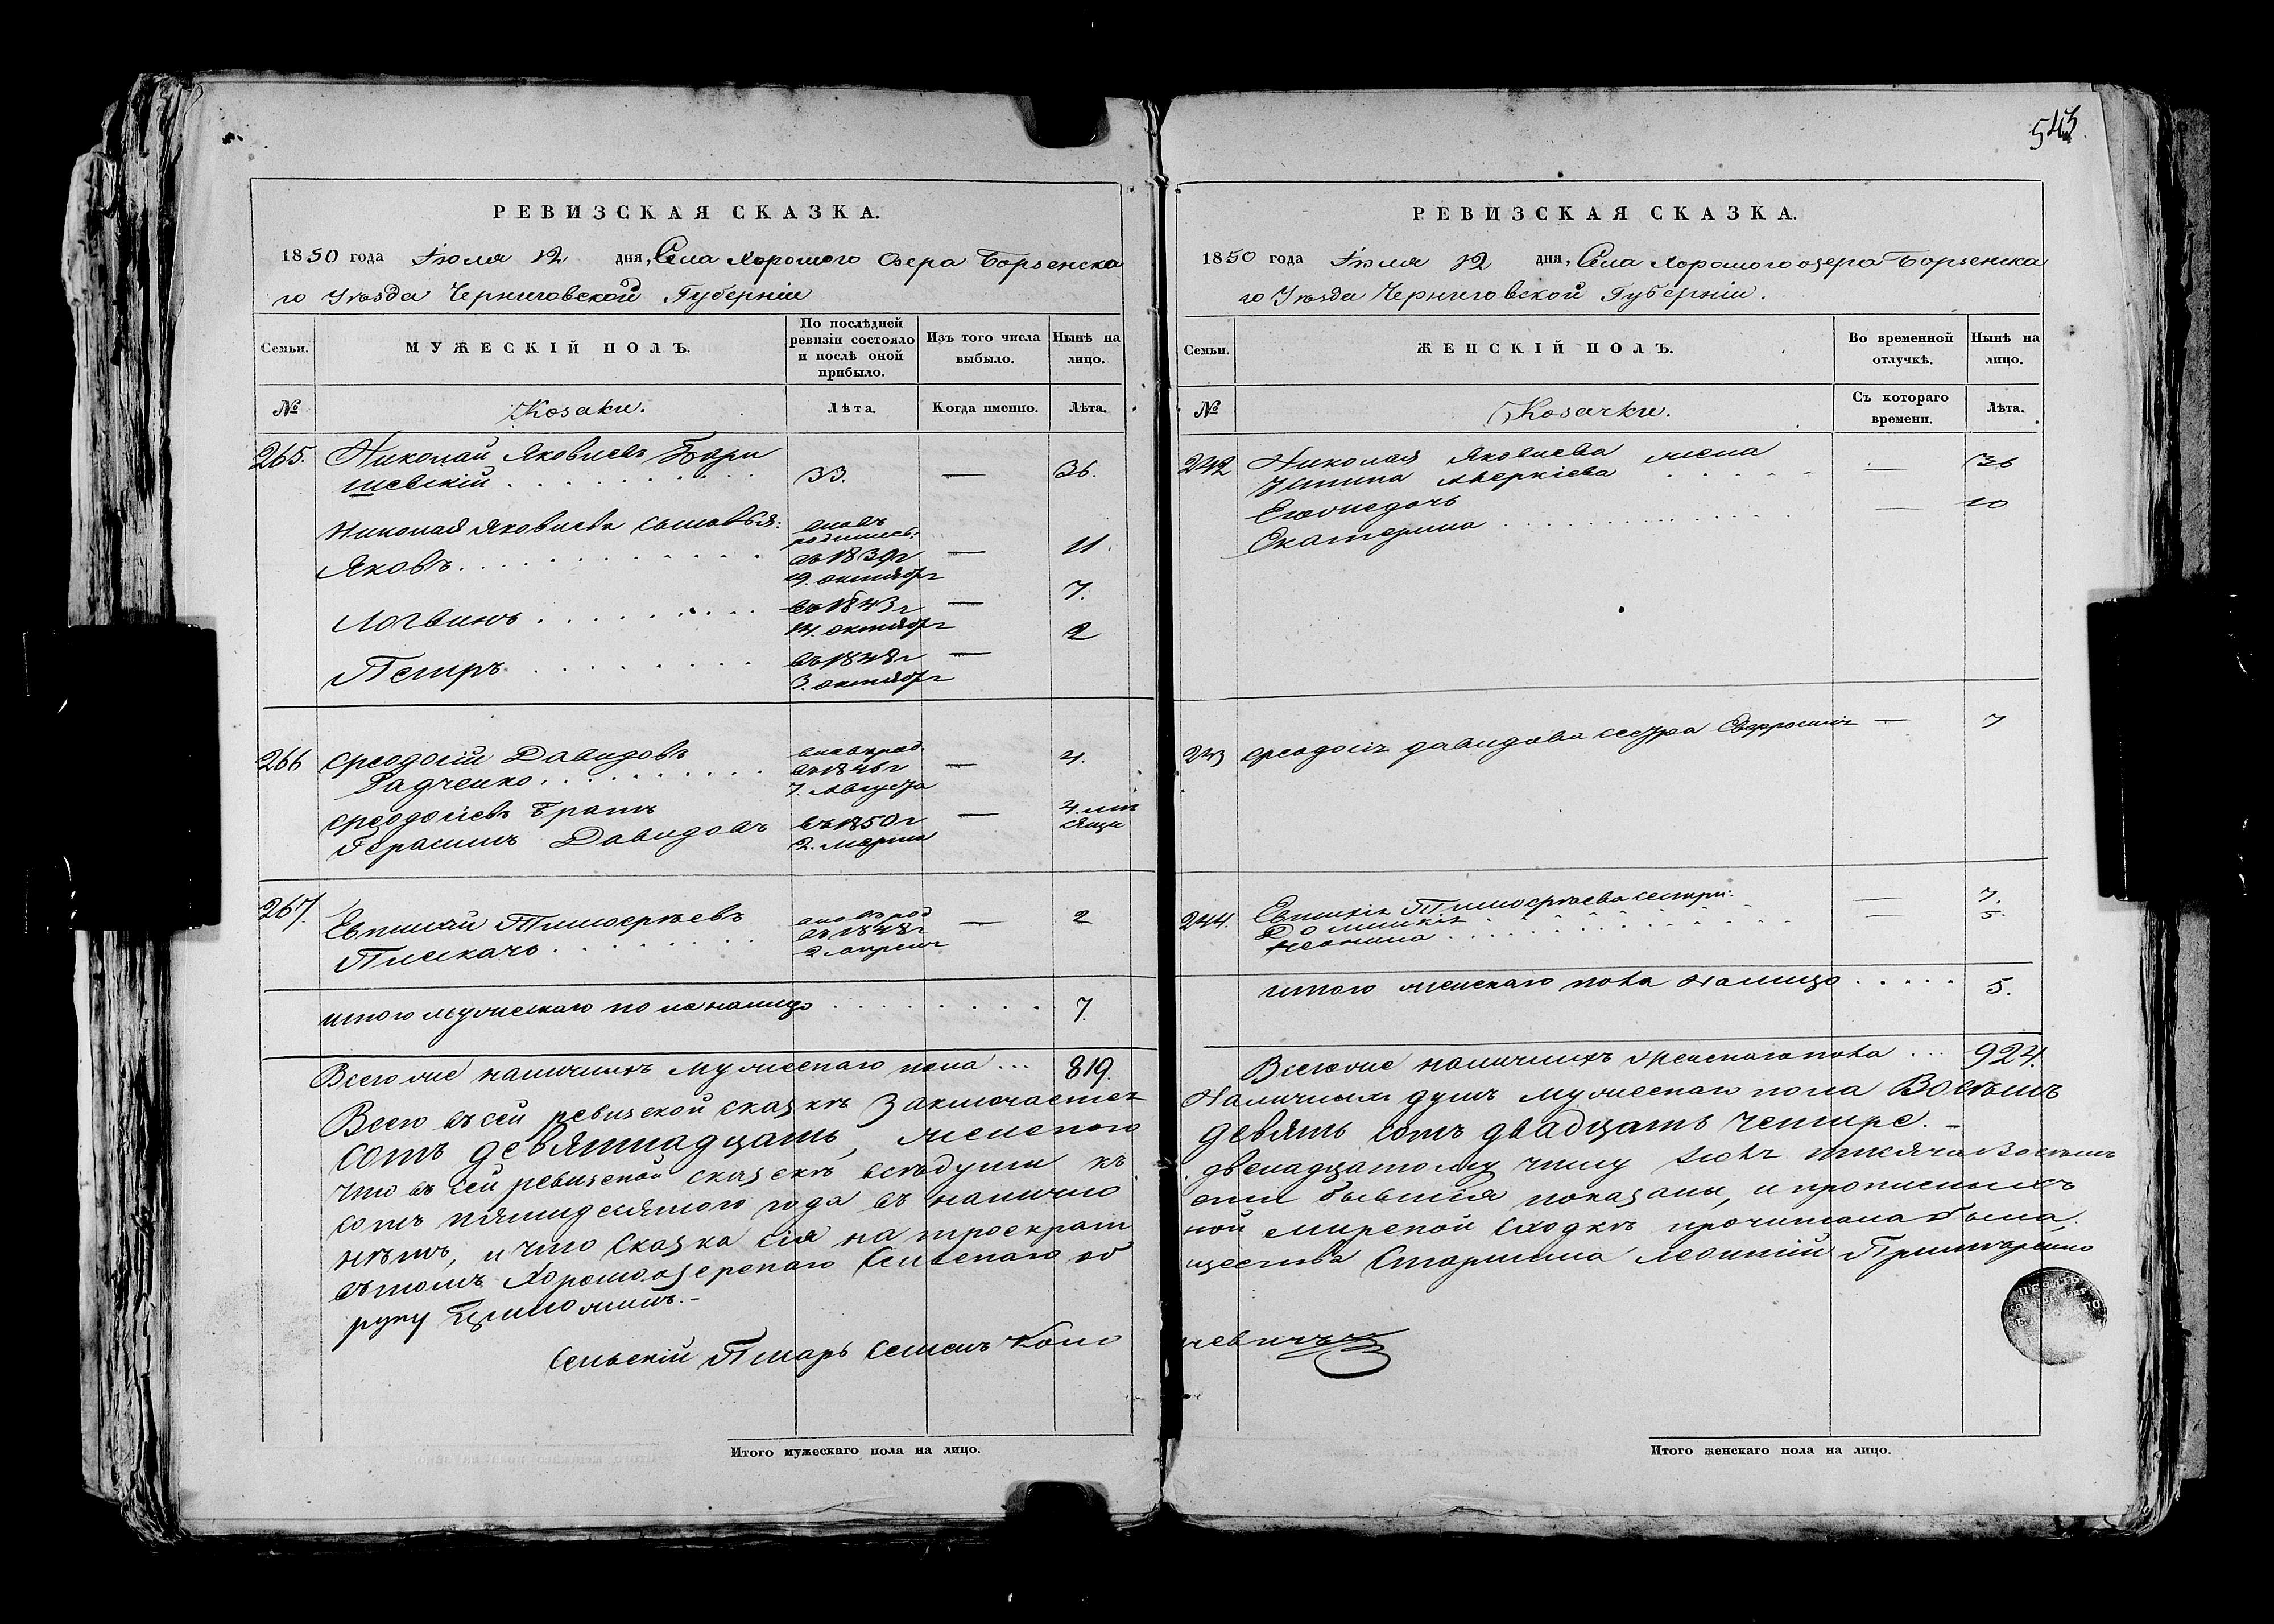 РЕВИЗСКАЯ СКАЗКА.
1850 года Июля 12 дня, Села Хорошого Озера Борзенска
го Уѣзда Черниговской Губерніи
Семьи.
МУЖЕСКІЙ ПОЛЪ.
По послѣдней
ревизіи состояло
и послѣ оной
прибыло.
Изъ того числа
выбыло.
Нынѣ на
лицо.
№
Козаки.
Лѣта.
Когда именно.
Лѣта.
265. Николай Яковлевъ Бори
шевскій 33. — 36.
Николая Яковлева сыновья: вновь
родились:
Яковъ въ 1839 г — 11.
19. октября
Логвинъ въ 1843 г — 7.
14. октября
Петръ въ 1848 г — 2
3. октября
266 Ѳеодосій Давидовъ вновь род.
Радченко въ 1846 г — 4.
7. Августа
Ѳеодосіевъ братъ
Герасимъ Давидовъ въ 1850 г — 4. мѣ
сяци
2. Марта
267. Евтихій Тимоѳѣевъ вновь род
Плискачъ въ 1848 г — 2
2 апреля
итого мужескаго пола налицо 7.
Всего же наличныхъ мужескаго пола ... 819.
Всего въ сей ревизской сказкѣ заключается
сотъ девятнадцать, женского
что въ сей ревизской сказскѣ всѣ души къ
сотъ пятидесятого года въ налично
нѣтъ, и что сказка сія на троекрат
въ томъ Хорошоозерскаго Сельскаго об
руку приложилъ.-
Сельскій Писарь Семенъ Коло
Итого мужескаго пола на лицо.
543.
РЕВИЗСКАЯ СКАЗКА.
1850 года Июля 12 дня, Села Хорошого озера Борзенска
го Уѣзда Черниговской Губерніи.
Семьи.
ЖЕНСКІЙ ПОЛЪ.
Во временной
отлучкѣ.
Нынѣ на
лицо.
№
Козачки.
Съ котораго
времени.
Лѣта.
242 Николая Яковлева жена
Устина Аверкіева — 36
Его же дочь
Екатерина — 10
243 Ѳеодосія Давидова сестра Евфросинія — 7
244. Евтихія Тимоѳѣева сестри:
Домникія — 7.
— 5.
итого женскаго пола налицо 5.
Всего же наличныхъ женскаго пола ... 924.
Наличныхъ душъ мужескаго пола Восѣмъ
девять сотъ двадцать четире.-
двенадцатому числу Июля тисяча Восѣмъ
сти бывшія показаны, и прописныхъ
ной мирской сходкѣ прочитана была,
щества Старшина Леонтій
чевичъ
Итого женскаго пола на лицо.